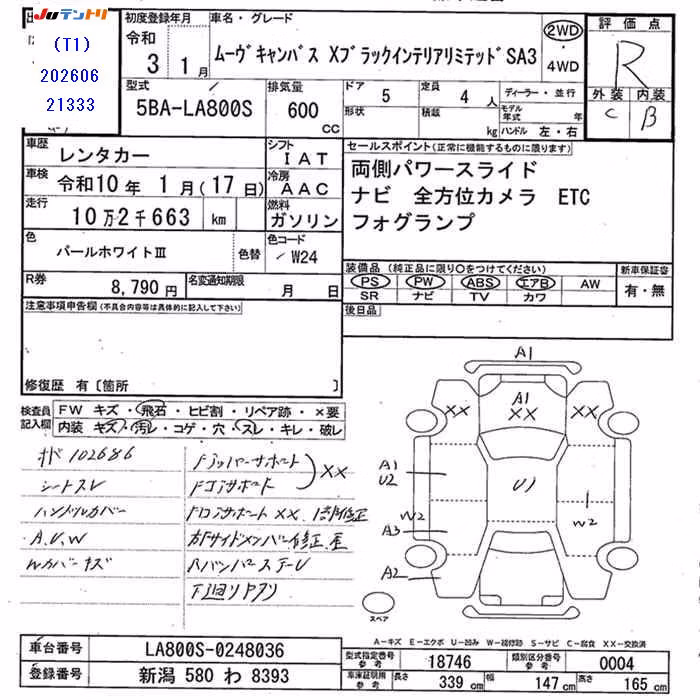 Juテントリ
(T1)
202606
21333
初度登録年月
令和
3 1月
車名・グレード
ムーヴキャンバス XブラックインテリアリミテッドSA3
2WD
・
4WD
評価点
R
外装 内装
C B
型式
5BA-LA800S
排気量
600
CC
ドア
5
形状
定員
4 人
積載
kg
ディーラー・並行
モデル年式 年
ハンドル 左・右
車歴
レンタカー
シフト
I AT
車検
令和10年 1月(17日)
冷房
AAC
走行
10万2千663 km
燃料
ガソリン
色
パールホワイトIII
色替
色コード
W24
R券
8,790円
名変通知期限
月 日
セールスポイント(正常に機能するものに限ります)
両側パワースライド
ナビ 全方位カメラ ETC
フォグランプ
装備品(純正品に限り○をつけてください)
PS PW ABS エアB AW
SR ナビ TV カワ
新車保証書
有・無
後日品
注意事項申告欄(不具合内容等は具体的に記入して下さい)
修復歴 有〔箇所 〕
検査員
記入欄
FW キズ・飛石・ヒビ割・リペア跡・×要
内装 キズ・汚レ・コゲ・穴・スレ・キレ・破レ
102686
シートスレ
ハンドルカバー
A.U.W
Fコアサポート
XX
Fコアサポート XX
A1
A1
XX
XX
XX
A1
U2
U1
W2
W2
A3
A2
スペア
A－キズ E－エクボ U－凹み W－補修跡 S－サビ C－腐食 XX－交換済
車台番号
LA800S-0248036
登録番号
新潟 580 わ 8393
型式指定番号
参考
18746
類別区分番号
参考
0004
車庫証明用
参考
長さ
339 cm
幅
147 cm
高さ
165 cm